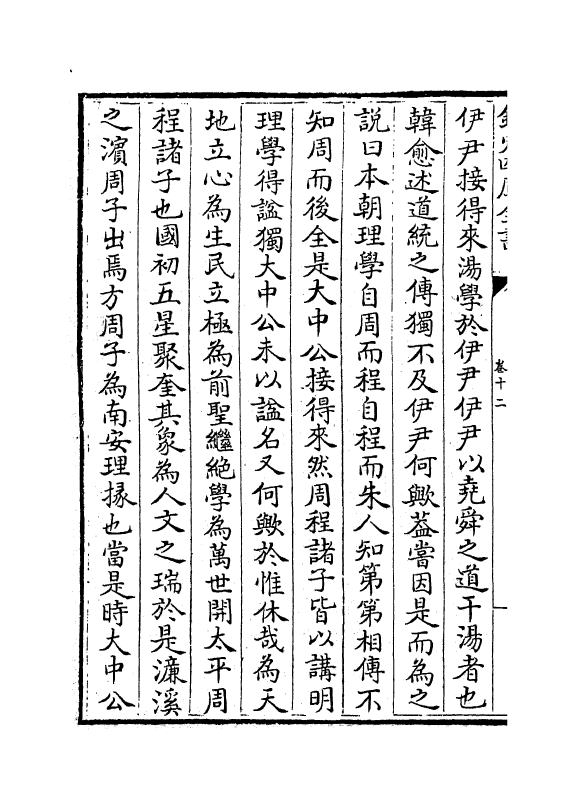 欽定四庫全書
卷十二
伊尹接得來湯學於伊尹伊尹以堯舜之道干湯者也
韓愈述道統之傳獨不及伊尹何歟葢嘗因是而為之
説曰本朝理學自周而程自程而朱人知第第相傳不
知周而後全是大中公接得來然周程諸子皆以講明
理學得諡獨大中公未以諡名又何歟於惟休哉為天
地立心為生民立極為前聖繼絶學為萬世開太平周
程諸子也國初五星聚奎其象為人文之瑞於是濂溪
之濱周子出焉方周子為南安理掾也當是時大中公